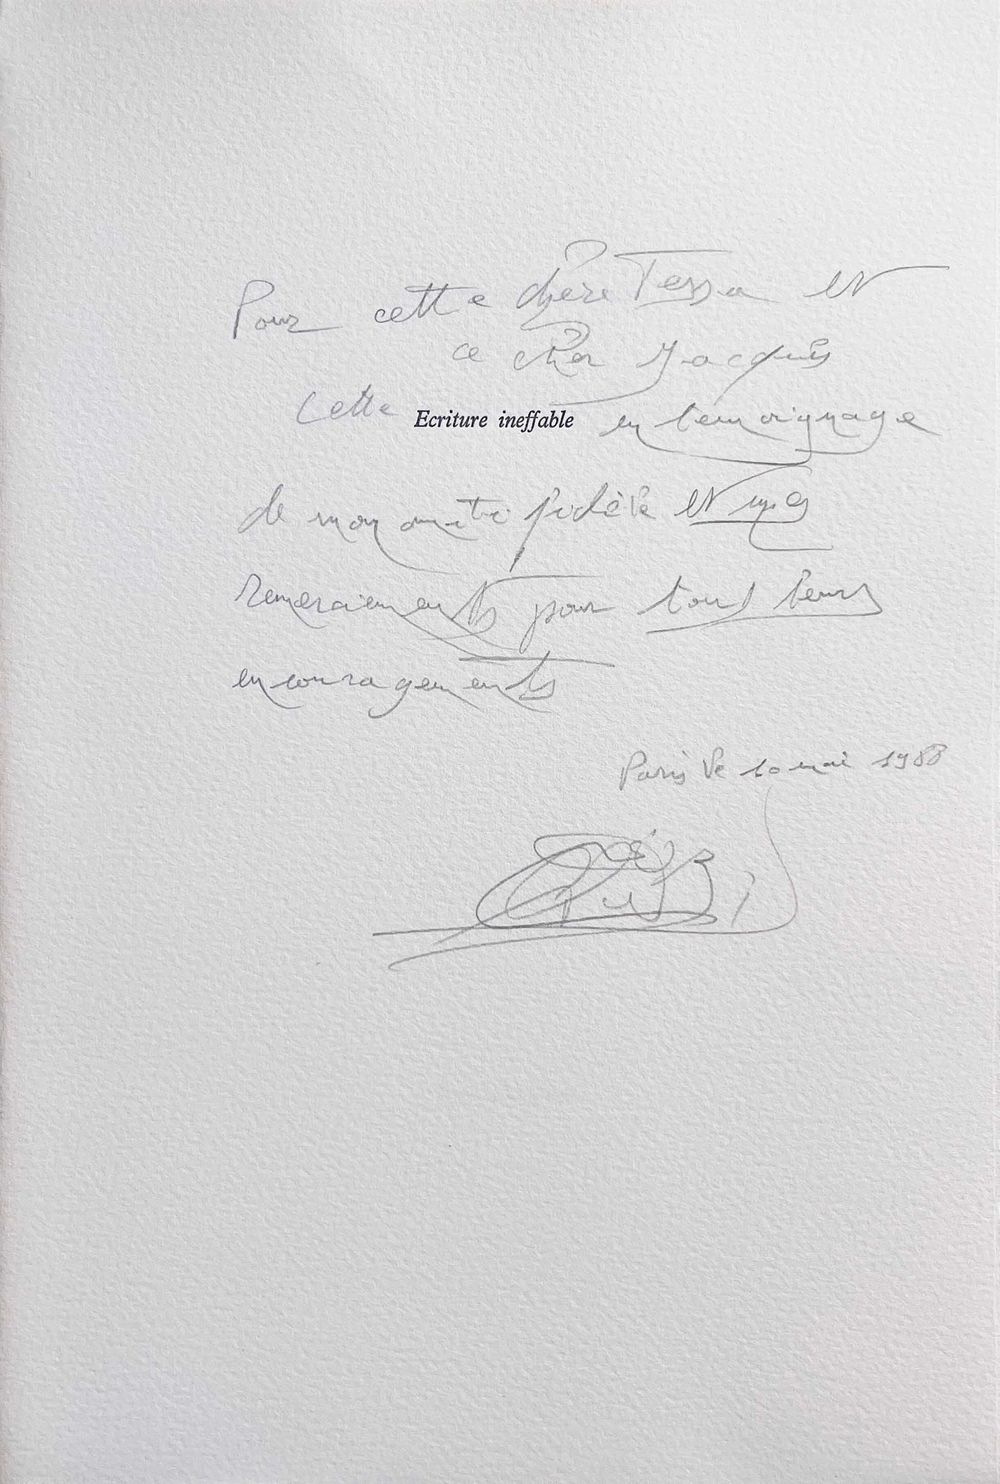 Pour cette chère Tessa et
ce cher Jacques
Cette Ecriture ineffable en temoignage
de mon amitié fidèle et mes
remerciements pour tous leurs
encouragements
Paris le 10 mai 1988